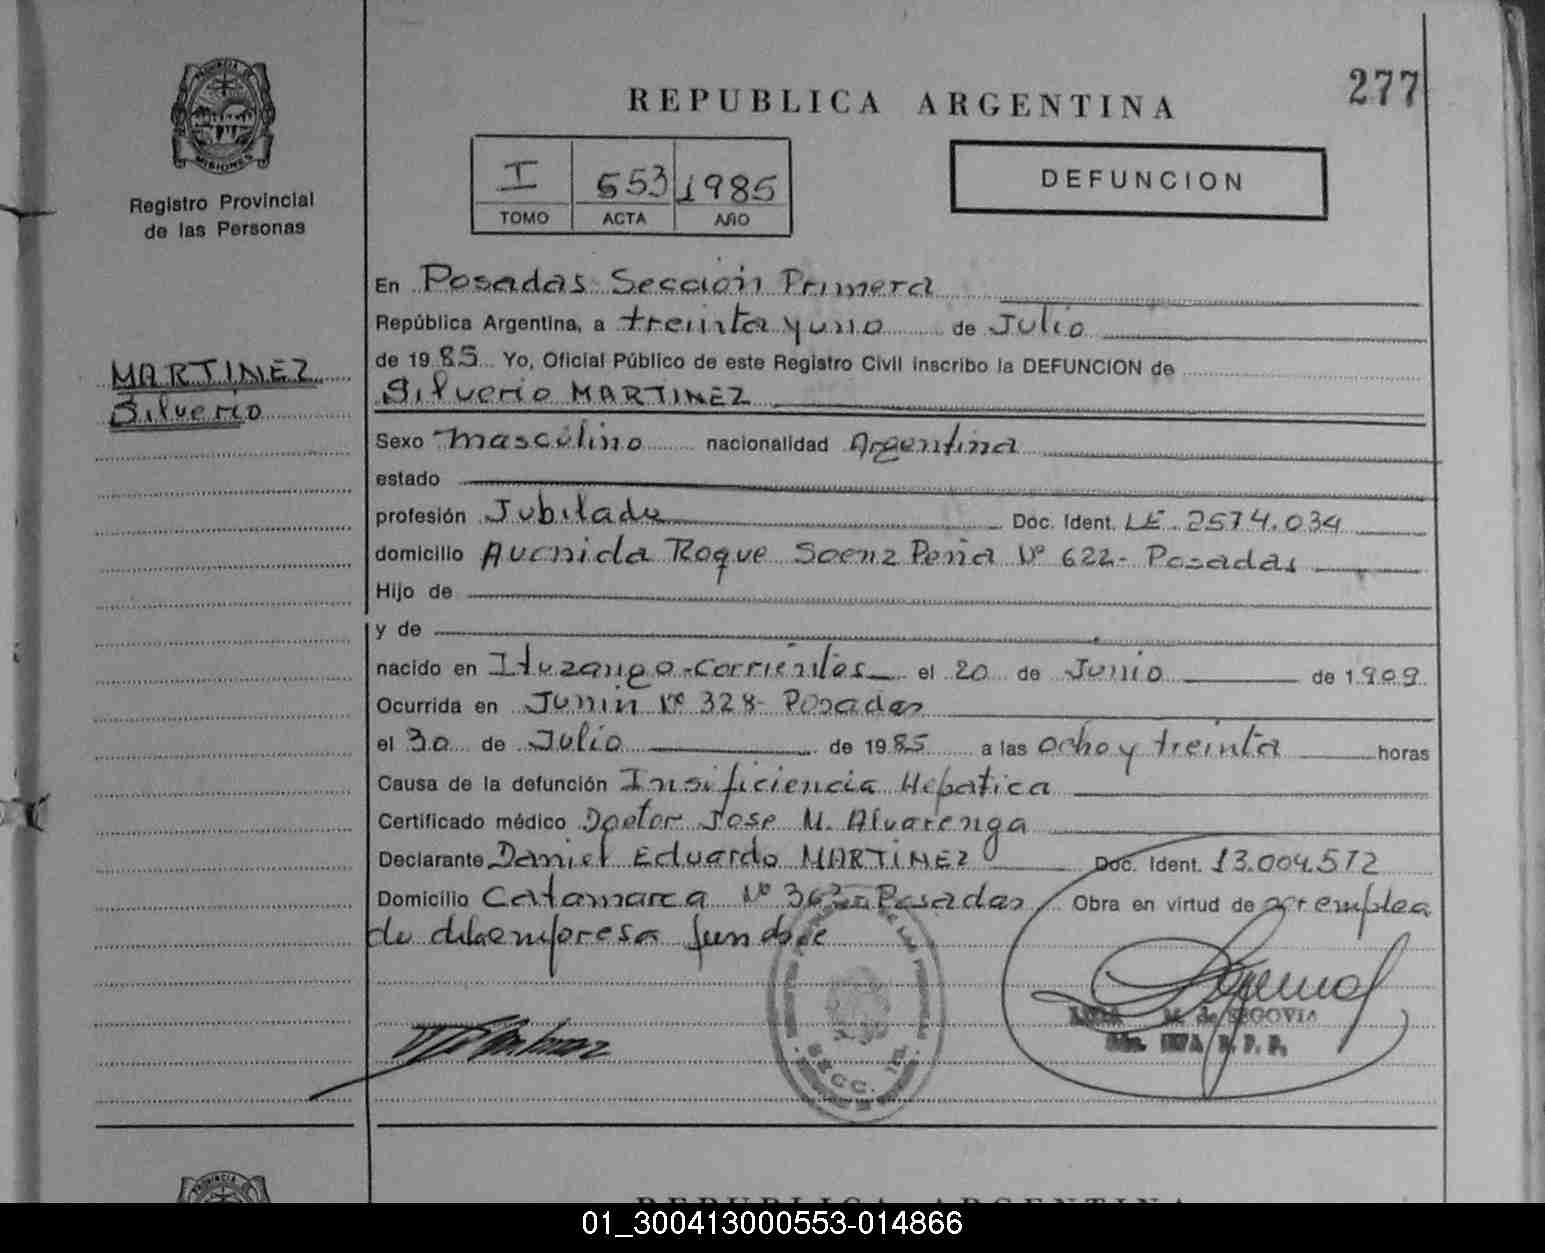 277
REPUBLICA ARGENTINA
PROVINCIA DE
MISIONES
Registro Provincial
de las Personas
I 553 1985
TOMO ACTA AÑO
DEFUNCION
MARTINEZ
Silverio
En Posadas Sección Primera
República Argentina, a treinta y uno de Julio
de 1985 Yo, Oficial Público de este Registro Civil inscribo la DEFUNCION de
Silverio MARTINEZ
Sexo masculino nacionalidad Argentina
estado
profesión Jubilado Doc. Ident. LE. 2574.034
domicilio Avenida Roque Saenz Peña Nº 622- Posadas
Hijo de
y de
nacido en Ituzango-Corrientes el 20 de Junio de 1909
Ocurrida en Junin Nº 328- Posadas
el 30 de Julio de 1985 a las ocho y treinta horas
Causa de la defunción Insificiencia Hepatica
Certificado médico Doctor Jose M. Alvarenga
Declarante Daniel Eduardo MARTINEZ Doc. Ident. 13.004.572
Domicilio Catamarca Nº Posadas Obra en virtud de ser emplea
do de empresa funebre
SECC. 1ra.
M. de SEGOVIA
REPUBLICA ARGENTINA
01_300413000553-014866